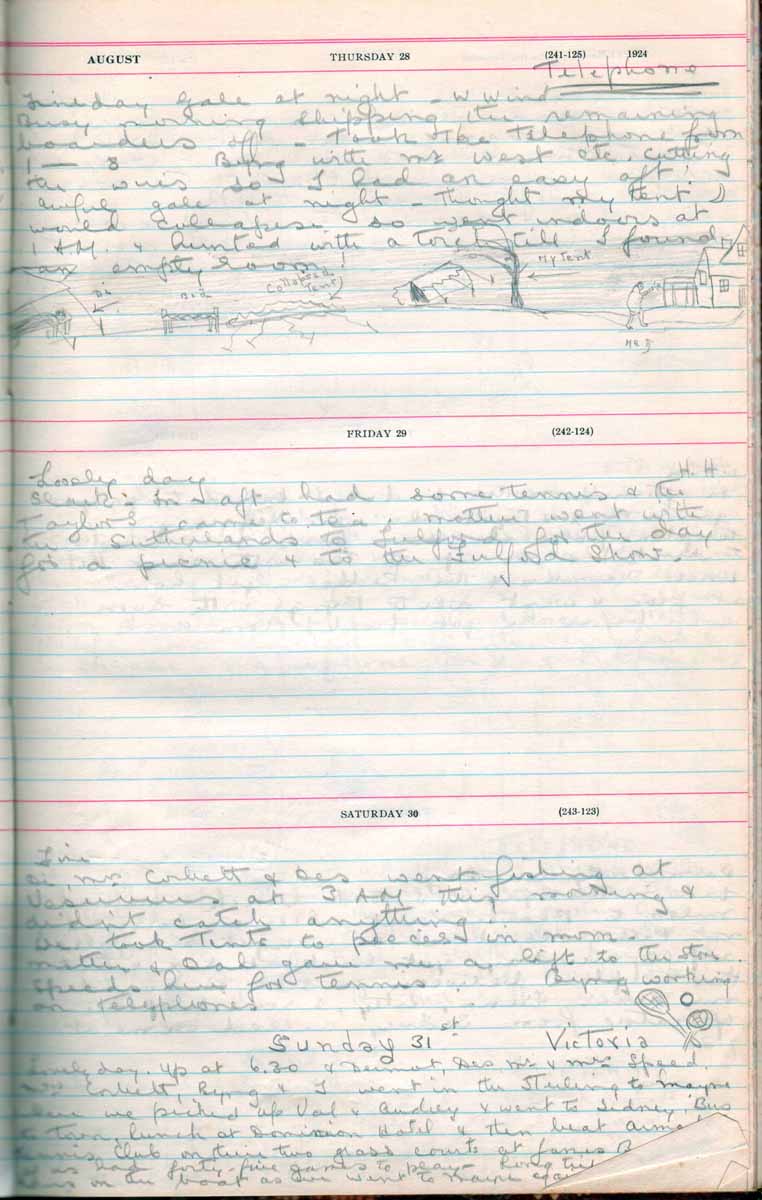 AUGUST THURSDAY 28 (241-125) 1924
Telephone
Fine day Gale at night - W Wind
Busy morning shipping the remaining
boarders off - Took the Telephone from
1 — 8 Byng with Mr West etc. cutting
the wires so I had an easy aft!
Awful gale at night - thought my tent
would collapse so went indoors at
1 A.M. & hunted with a torch till I found
an empty room!
Bed
Collapsed Tent
My Tent
Me
FRIDAY 29 (242-124)
Lovely day H. H.
Slack. In aft had some tennis & the
Taylors came to tea, mother went with
the Sutherlands to Fulford for the day
for a picnic & to the Fulford Show.
SATURDAY 30 (243-123)
Fine
Mr Corbett & Des went fishing at
Vesuvius at 3 AM this morning &
didn't catch anything!
We took Tents to pieces in morn.
Mother & gave me a lift to the store
Speeds here for tennis. Byng working
on telephones
Sunday 31st Victoria
Lovely day. Up at 6.30 & Dermot, Des, Mr & Mrs Speed,
Corbett, Byng & I went in the to Mayne
where we picked up Val & Audrey & went to Sidney, Bus
to town, lunch at Dominion Hotel & then beat
Tennis Club on their two grass courts at James B
as had forty-five games to play -
on the boat as we went to Mayne